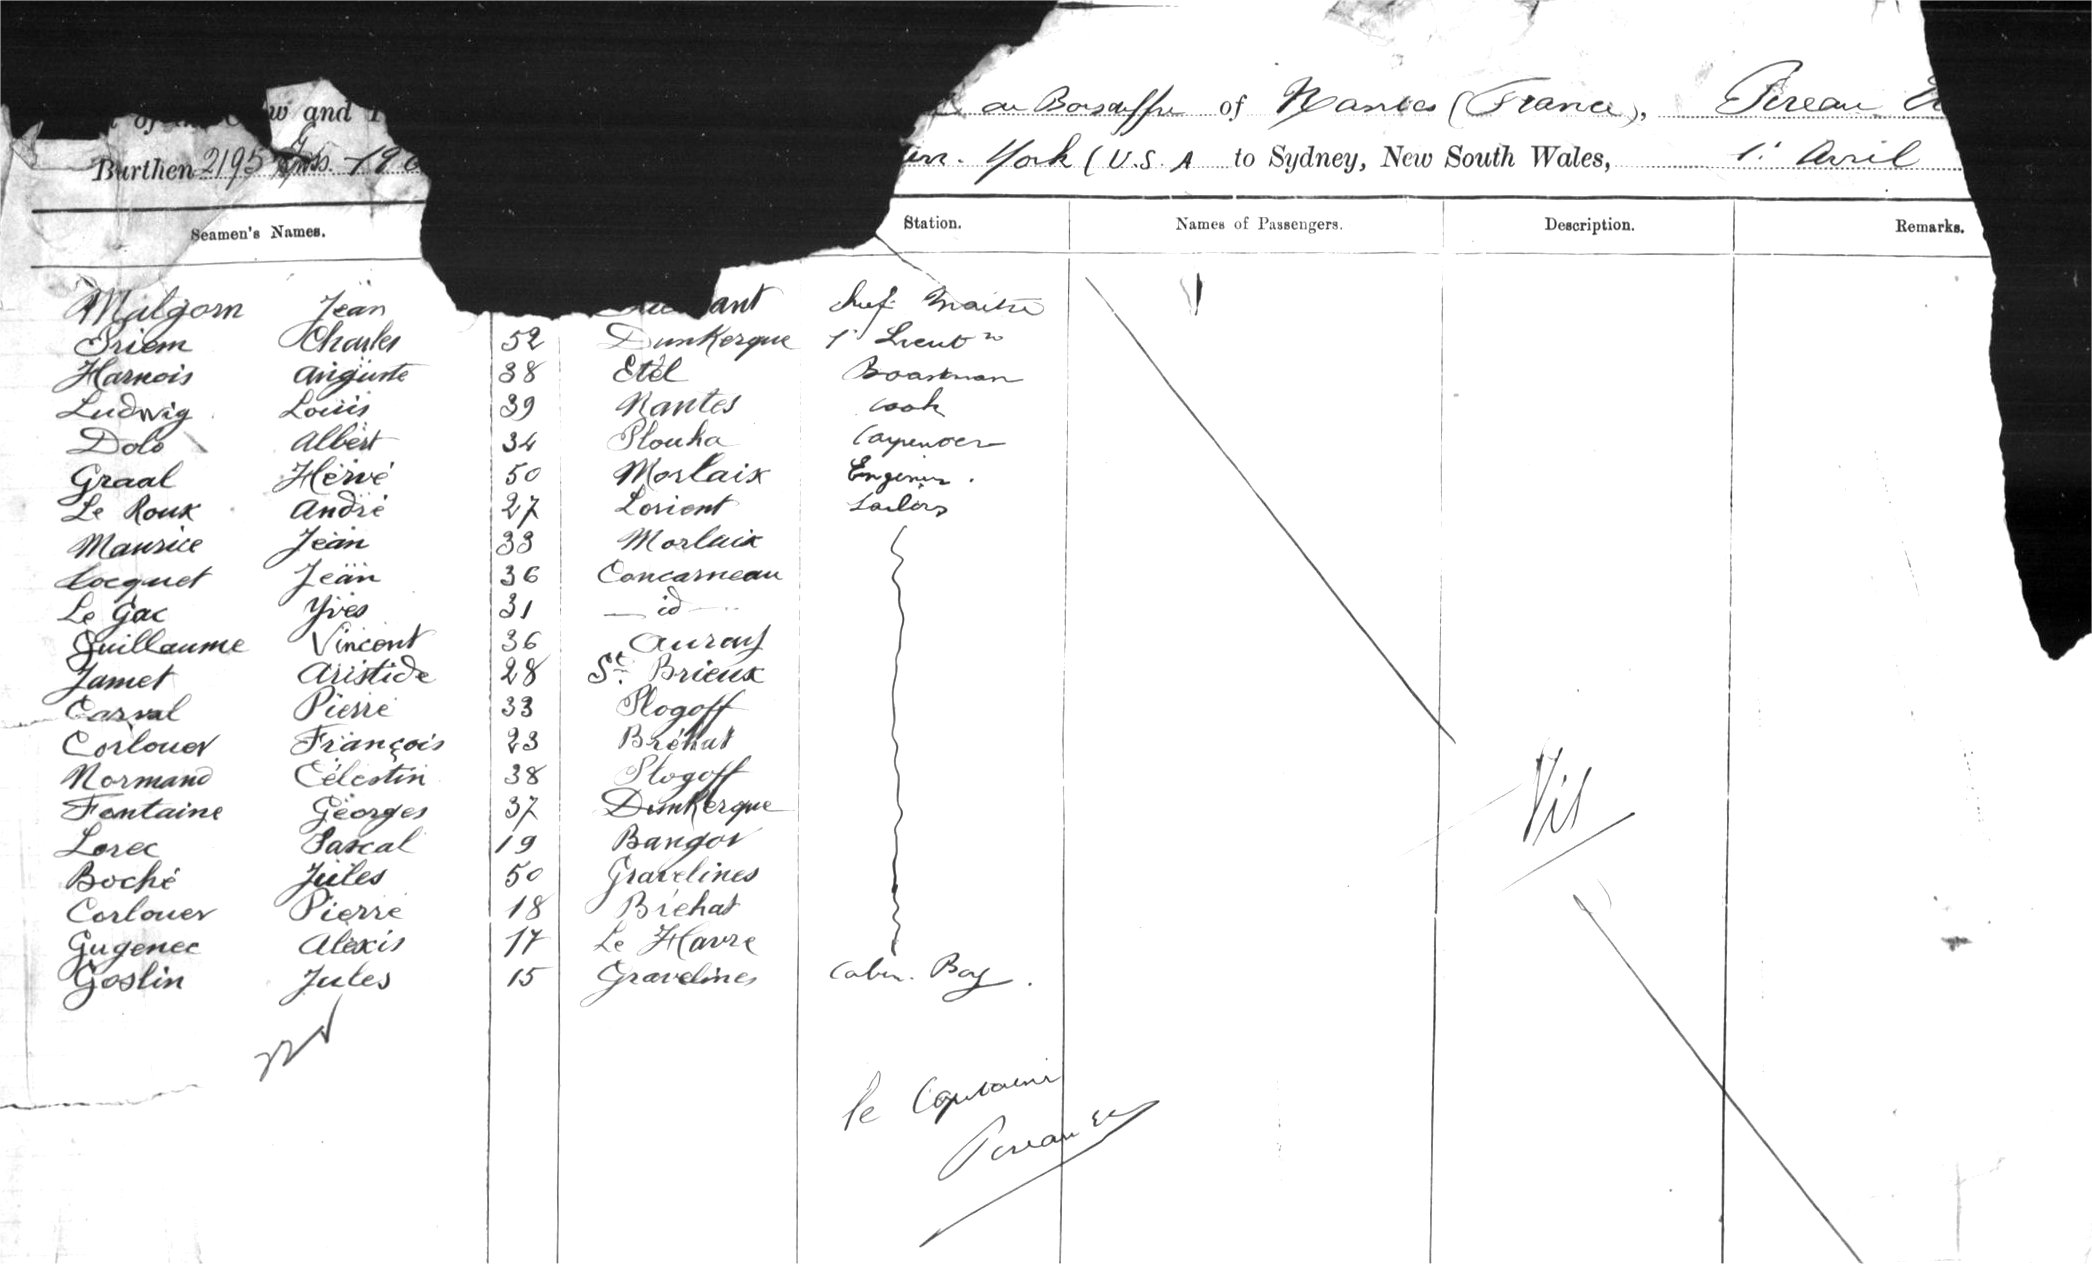 w and
on Boisauffre of Nantes (France), Pereau
Burthen 2195 Tns. York (U.S.A to Sydney, New South Wales, 1: Avril
Seamen's Names. Station. Names of Passengers. Description. Remarks.
Malgorn Jean ant chef Maitre
Priem Charles 52 Dunkerque 1r Lieut
Harnois Auguste 38 Etel Boastman
Ludwig Louis 39 Nantes Cook
Dolo Albert 34 Plouha Carpenter
Graal Hervé 50 Morlaix Engineer.
Le Roux André 27 Lorient Sailors
Maurice Jean 33 Morlaix
Locquet Jean 36 Concarneau
Le Gac Yves 31 — id —
Guillaume Vincent 36 Auray
Jamet Aristide 28 St. Brieux
Carval Pierre 33 Plogoff
Corlouer François 23 Bréhat
Normand Célestin 38 Plogoff
Fontaine Georges 37 Dunkerque
Lorec Pascal 19 Bangor
Boché Jules 50 Gravelines
Corlouer Pierre 18 Bréhat
Gugenec Alexis 17 Le Havre
Goslin Jules 15 Gravelines Cabin. Boy.
le Capitaine
Pereau